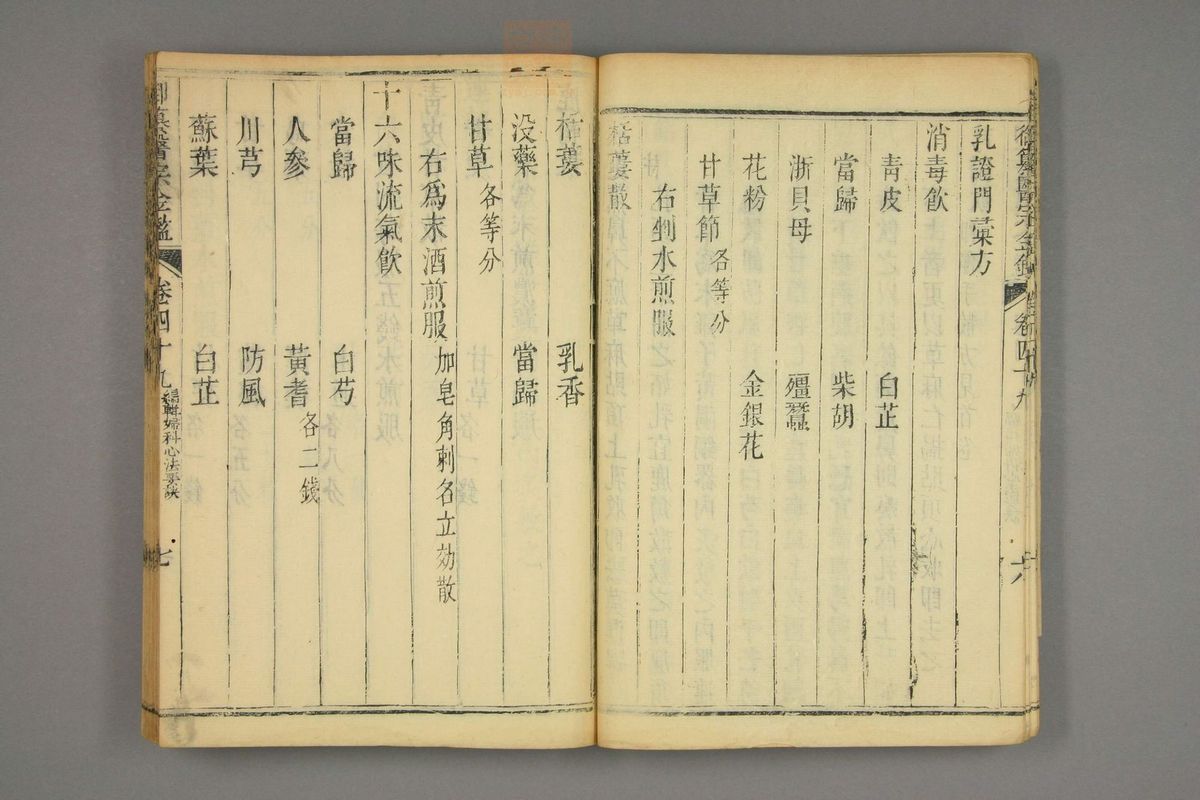 乳證門彙方
消毒飲
青皮 白芷
當歸 柴胡
浙貝母 殭蠶
花粉 金銀花
甘草節 各等分
右剉水煎服
栝蔞散
栝蔞 乳香
沒藥 當歸
甘草 各等分
右爲末酒煎服 加皂角刺名立効散
十六味流氣飲
當歸 白芍
人參 黃耆 各二錢
川芎 防風
蘇葉 白芷
御纂醫宗金鑑 卷四十九 編輯婦科心法要訣 七